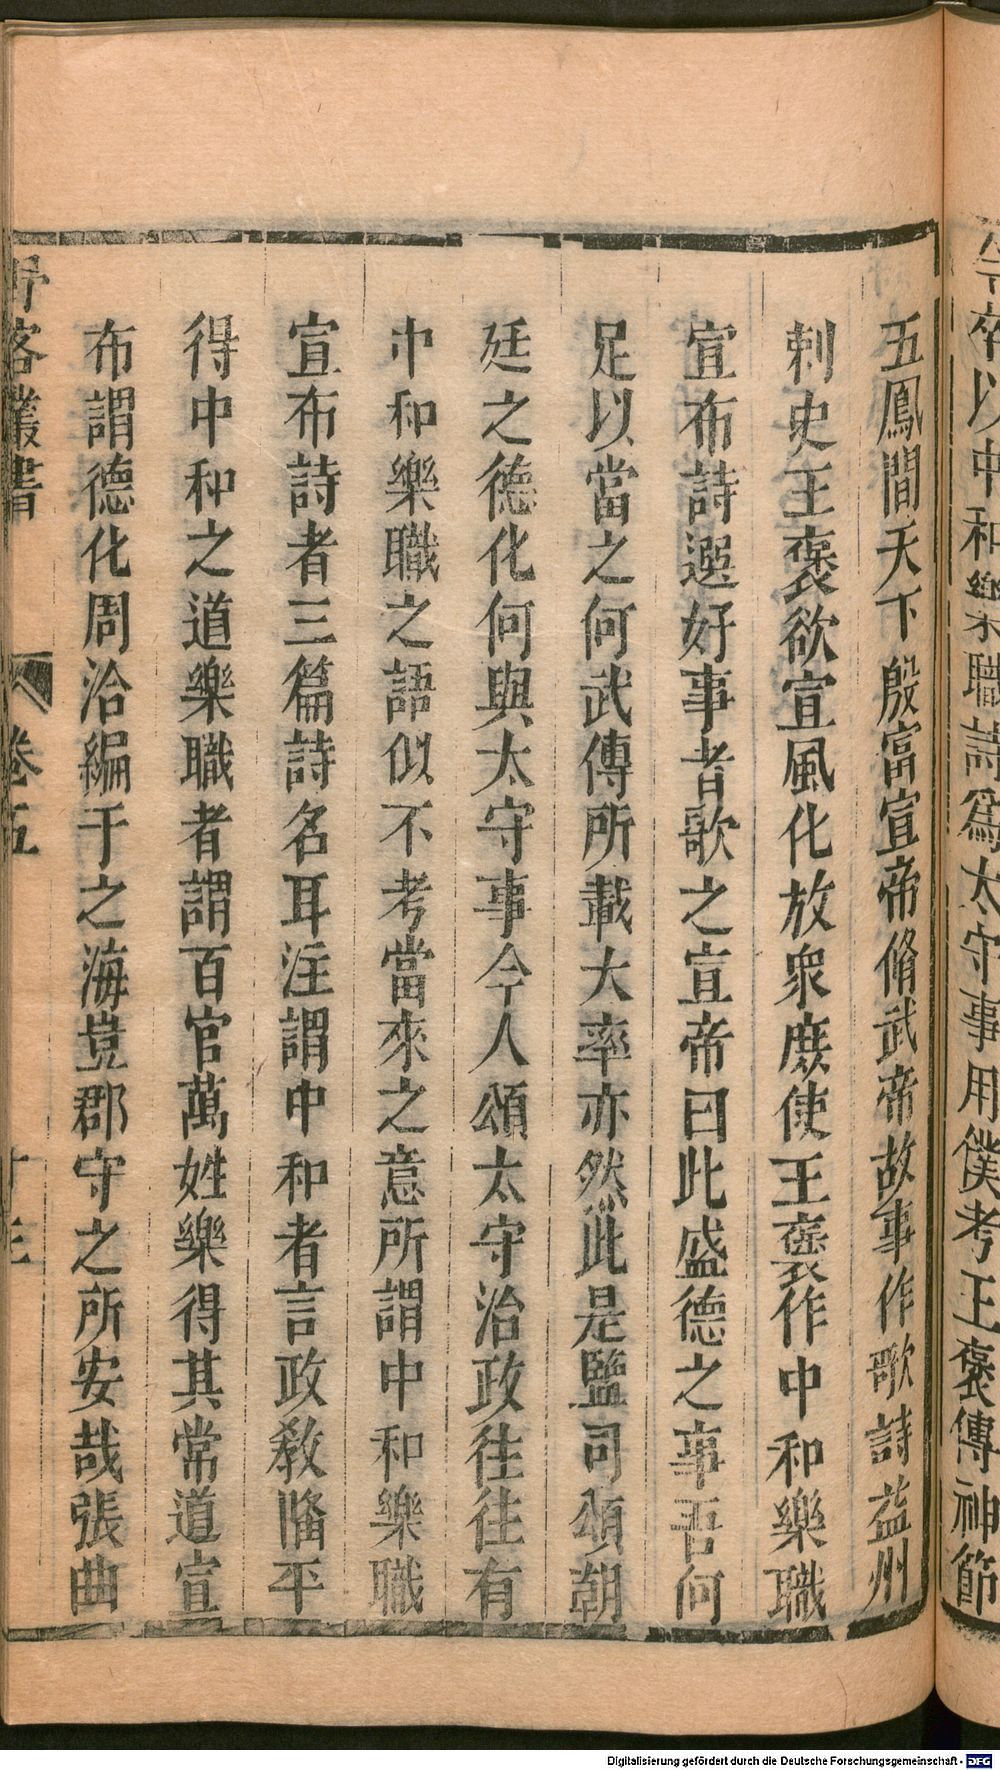 卒以中和樂職詩爲太守事用僕考王褒傳神節
五鳳間天下殷富宣帝脩武帝故事作歌詩益州
刺史王褒欲宣風化放衆庶使王褒作中和樂職
宣布詩選好事者歌之宣帝曰此盛德之事吾何
足以當之何武傳所載大率亦然此是監司頌朝
廷之德化何與太守事今人頌太守治政往往有
中和樂職之語似不考當來之意所謂中和樂職
宣布詩者三篇詩名耳注謂中和者言政教隆平
得中和之道樂職者謂百官萬姓樂得其常道宣
布謂德化周洽編于之海豈郡守之所安哉張曲
野客叢書 卷五 十三
Digitalisierung gefördert durch die Deutsche Forschungsgemeinschaft - DFG